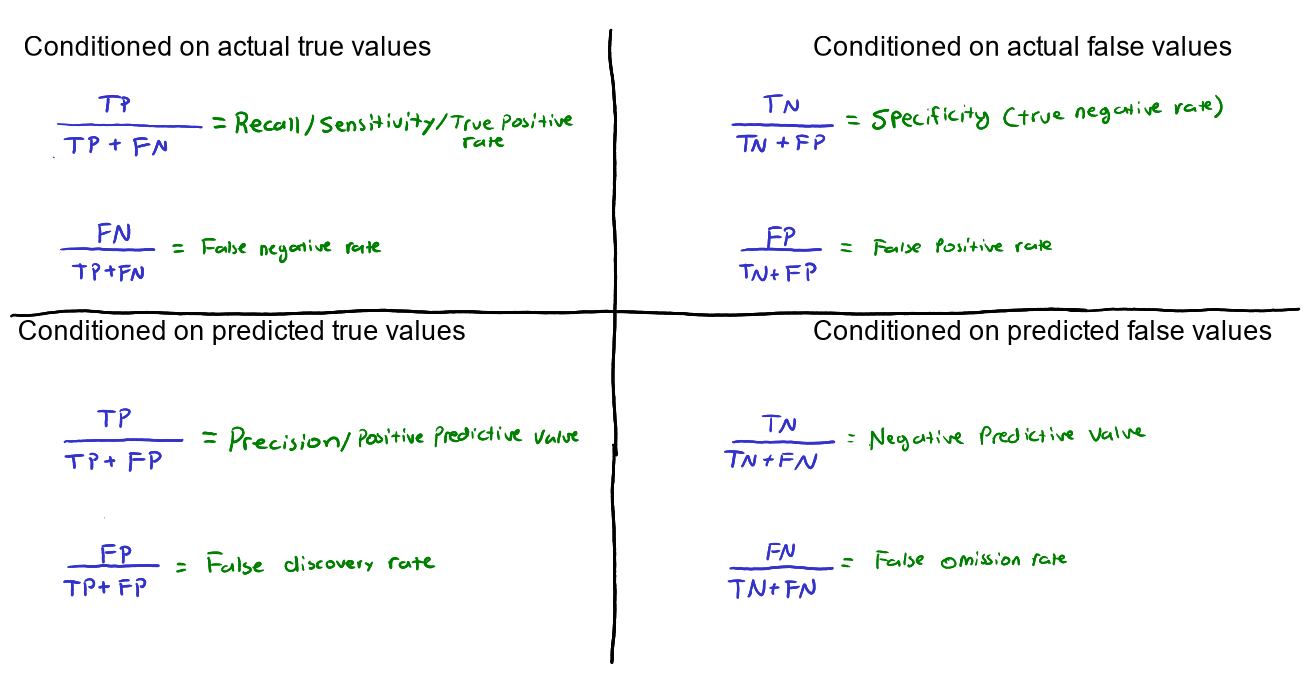 Conditioned on actual true values
TP
TP + FN
= Recall/Sensitivity/True Positive
rate
FN
TP+FN
= False negative rate
Conditioned on actual false values
TN
TN + FP
= Specificity (true negative rate)
FP
TN+FP
= False Positive rate
Conditioned on predicted true values
TP
TP+ FP
= Precision/Positive Predictive Value
FP
TP+ FP
= False discovery rate
Conditioned on predicted false values
TN
TN+FN
= Negative Predictive Value
FN
TN+FN
= False omission rate